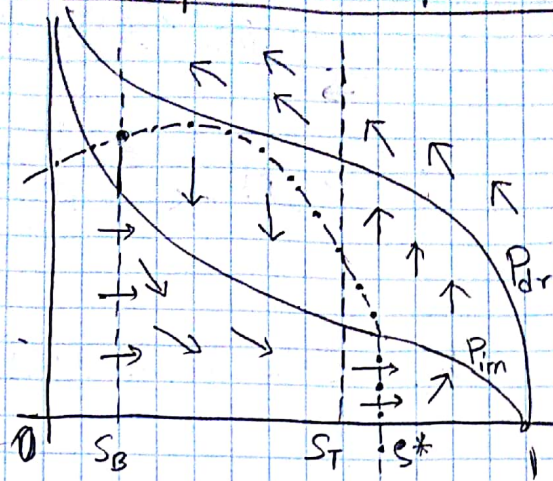 Pdr
Pim
0 SB ST S* 1